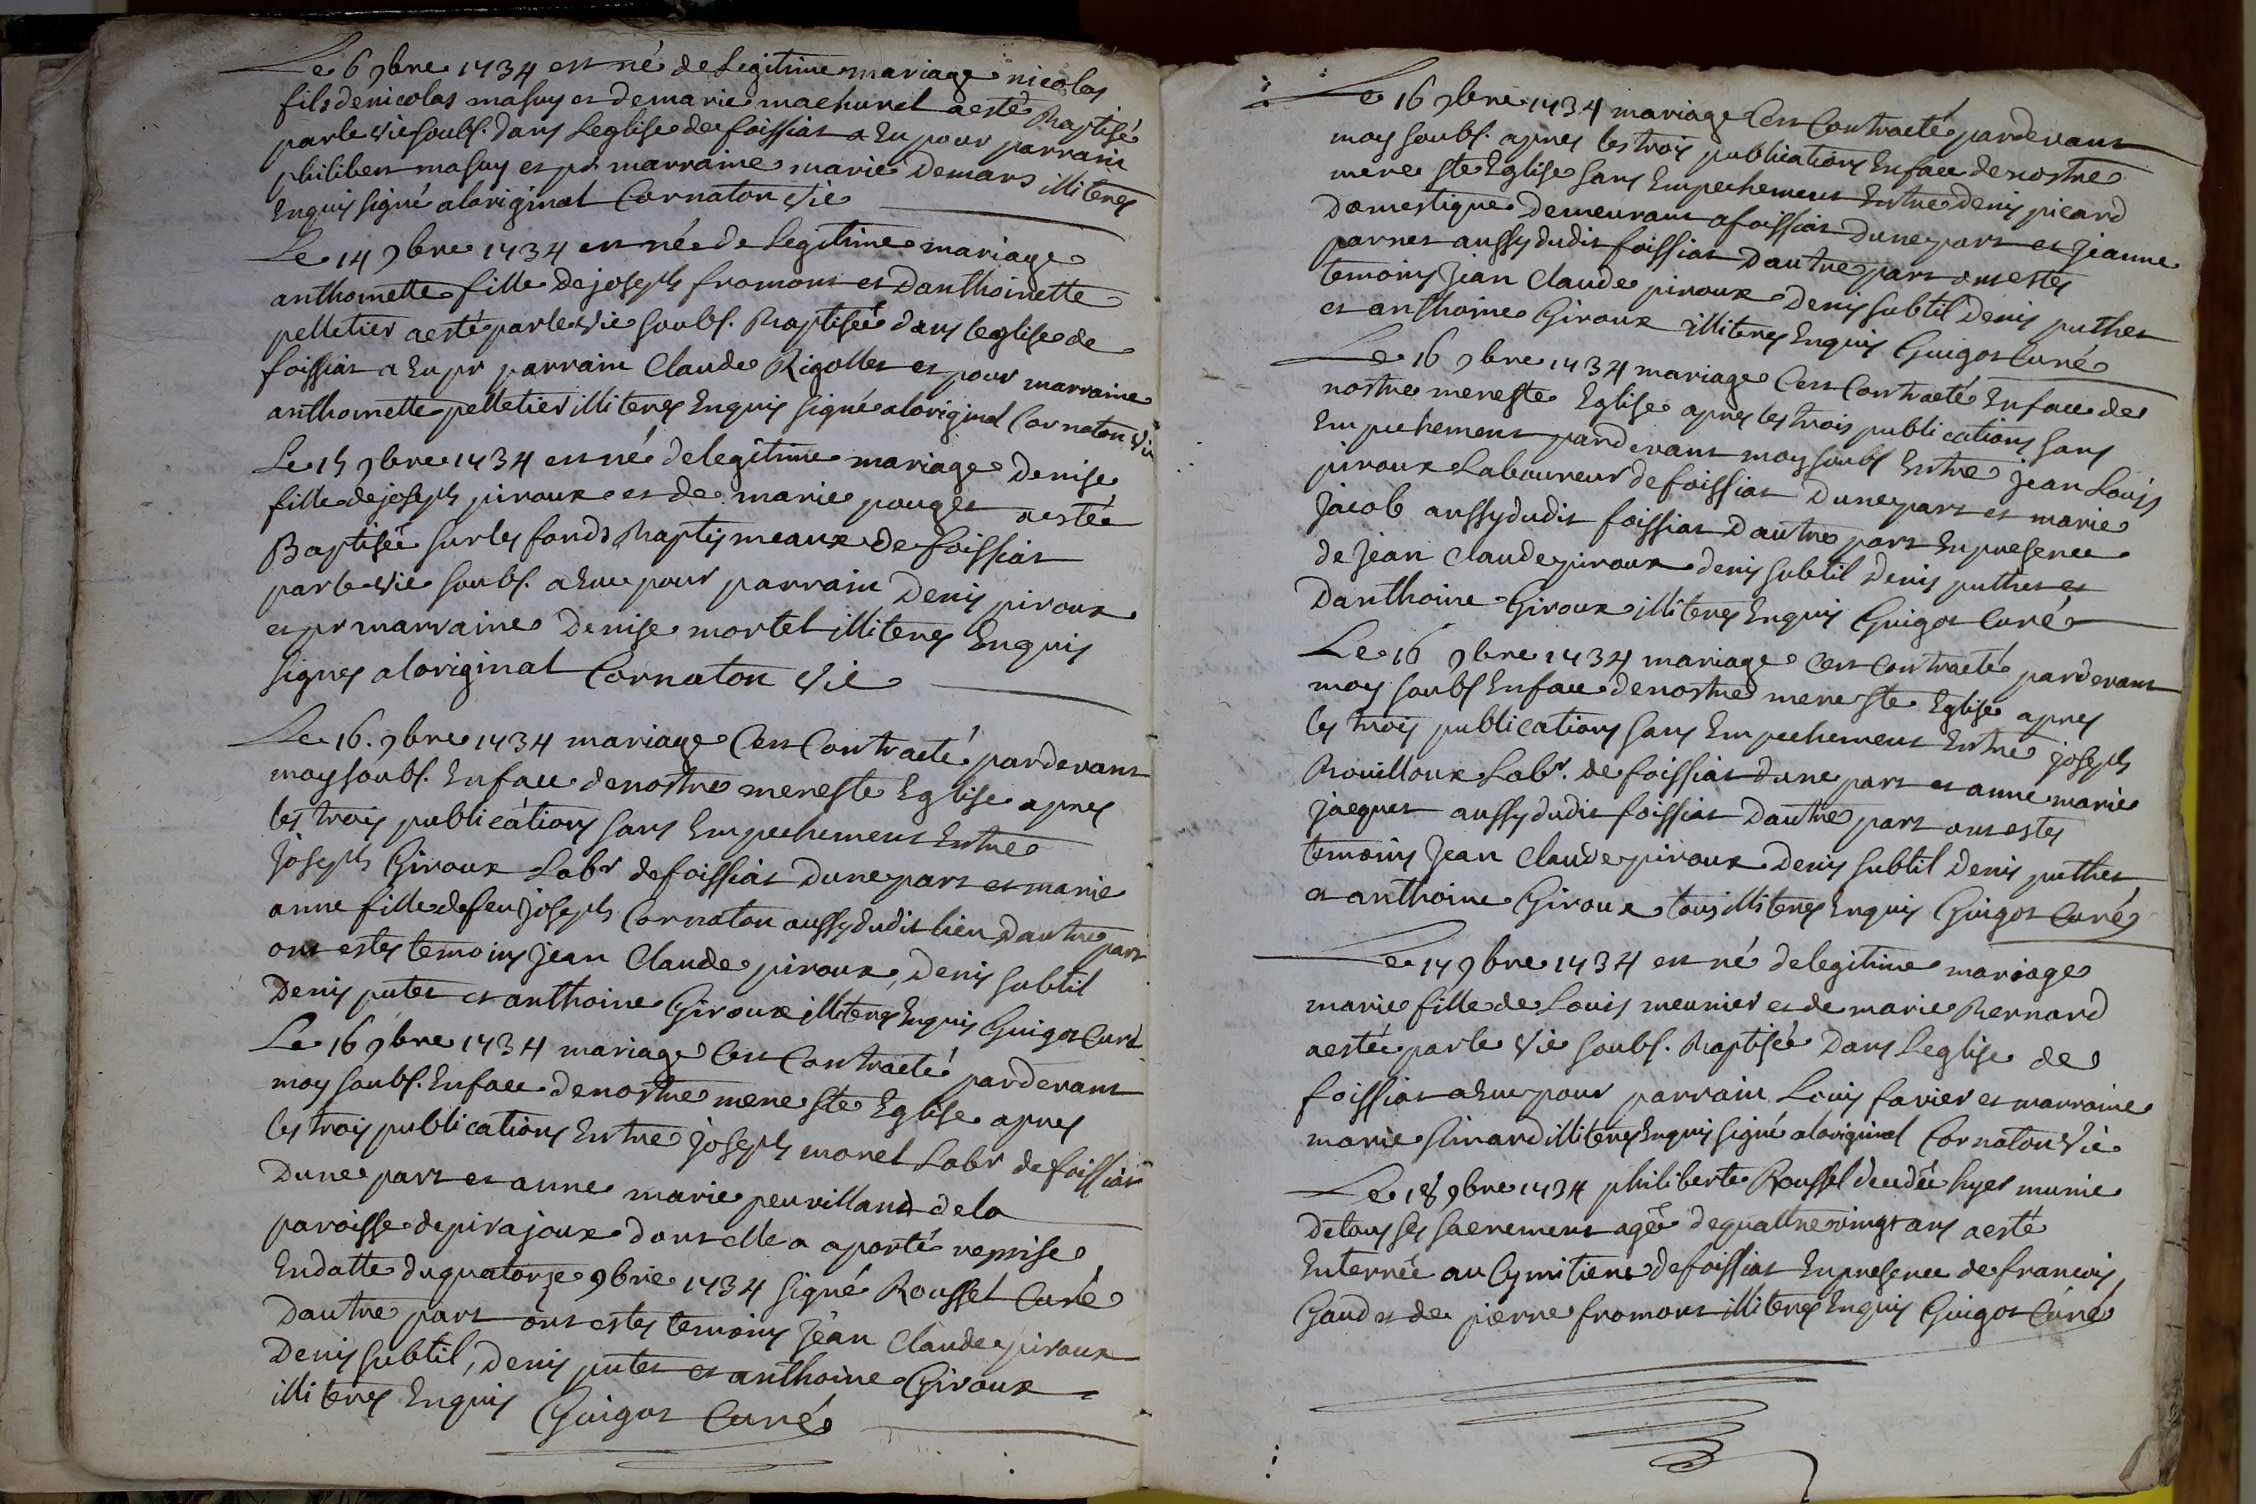 Le 6 9bre 1734 est né de Legitime mariage nicolas
fils de nicolas masuy et de marie machurel a esté Baptisé
par le vic soubs. dans Leglise de foissiat a Eu pour parrain
philibert masuy et pr marraine marie Demars illiterés
Enquis signé aloriginal Cornaton Vic
Le 14 9bre 1734 est née de Legitime mariage
anthoinette fille De joseph fromont et Danthoinette
pelletier a esté par le vic soubs. Baptiseé dans leglise de
foissiat a Eu pr parrain Claude Rigollet et pour marraine
anthoinette pelletier illiterés Enquis signé aloriginal Cornaton Vic
Le 15 9bre 1734 est né de legitime mariage Denise
fille de joseph piroux et de marie pouget a estée
Baptiseé sur les fonds Baptismeaux de foissiat
par le vic soubs. a Eue pour parrain Denis piroux
et pr marraine Denise mortel illiterés Enquis
signes aloriginal Cornaton Vic
Le 16. 9bre 1734 mariage Cest Contracté pardevant
moy soubs. En face de nostre mere ste Eglise apres
les trois publications sans Empechement Entre
joseph Giroux Labr de foissiat Dune part et marie
anne fille de feu joseph Cornaton aussy dudit lieu Dautre part
ont estes temoins jean Claude piroux, Denis subtil
Denis putet et anthoine Giroux illiterés Enquis Guigot Curé
Le 16 9bre 1734 mariage Cest Contracté pardevant
moy soubs. En face de nostre mere ste Eglise apres
les trois publications Entre joseph morel Labr de foissiat
Dune part et anne marie peuvilland de la
paroisse de pirajoux dont elle a aporté remise
En datte du quatorze 9bre 1734 signé Roussel Curé
Dautre part ont estes temoins jean Claude piroux
Denis subtil, Denis putet et anthoine Giroux
illiterés Enquis Guigot Curé
Le 16 9bre 1734 mariage Cest Contracté pardevant
moy soubs. apres les trois publications En face de nostre
mere ste Eglise sans Empechement Entre Denis picard
Domestique Demeurant a foissiat Dune part et jeanne
parnet aussy dudit foissiat Dautre part ont estes
temoins jean Claude piroux Denis subtil Denis puthet
et anthoine Giroux illiterés Enquis Guigot Curé
Le 16 9bre 1734 mariage Cest Contracté En face de
nostre mere ste Eglise apres les trois publications sans
Empechement pardevant moy soubs Entre jean Louis
piroux Laboureur de foissiat Dune part et marie
jacob aussy dudit foissiat Dautre part En presence
de jean Claude piroux denis subtil Denis puthet et
Danthoine Giroux illiterés Enquis Guigot Curé
Le 16 9bre 1734 mariage Cest Contracté pardevant
moy soubs En face de nostre mere ste Eglise apres
les trois publications sans Empechement Entre joseph
Bouilloux Labr. de foissiat dune part et anne marie
jacquet aussy dudit foissiat Dautre part ont estes
temoins jean Claude piroux Denis subtil Denis puthet
et anthoine Giroux tous illiterés Enquis Guigot Curé
Le 17 9bre 1734 est né de legitime mariage
marie fille de Louis meunier et de marie Bernard
a estée par le vic soubs. Baptiseé Dans Leglise de
foissiat a Eue pour parrain Louis favier et marraine
marie illiterés Enquis signé aloriginal Cornaton Vic
Le 18 9bre 1734 philiberte Roussel decedée hyer munie
de tous ses sacrements ageé de quattre vingt ans a esté
Enterreé au Cymitiere de foissiat En presence de francois
Gaud et de pierre fromont illiterés Enquis Guigot Curé